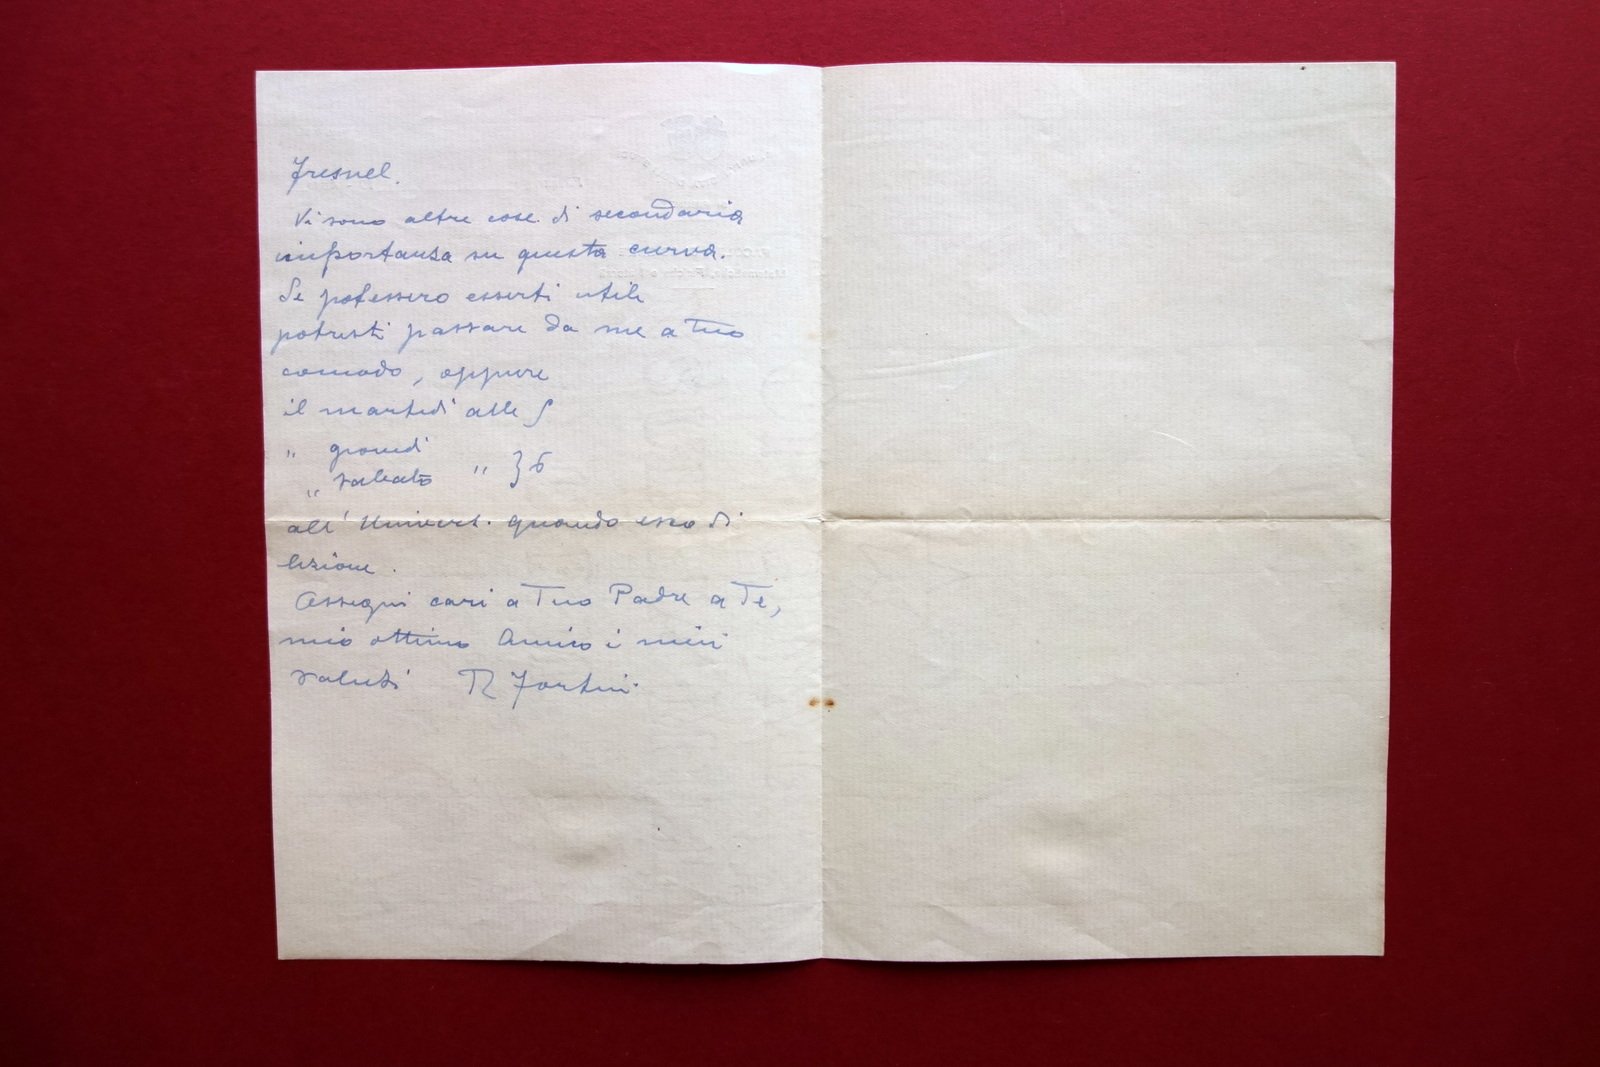 Fresnel.
Vi sono altre cose di secondaria
importanza su questa curva.
Se potessero esserti utili
potresti passare da me a tuo
comodo, oppure
il martedì alle 5
" giovedì
" sabato " } 6
all' Univers. quando esco di
lezione.
Ossequi cari a Tuo Padre a Te,
mio ottimo Amico i miei
saluti R Fortini